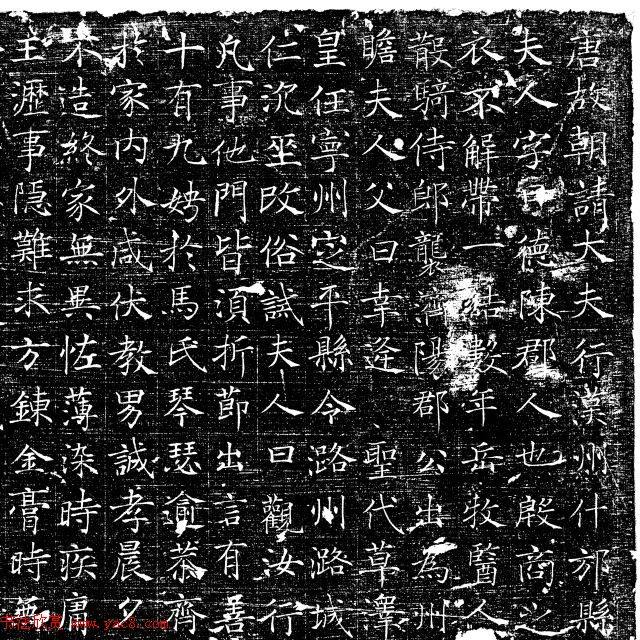 唐故朝請大夫行漢州什邡縣
夫人字曰德陳郡人也殷商之
衣不解帶一結數年岳牧醫人
散騎侍郎襲濟陽郡公出為州
瞻夫人父曰幸逢聖代草澤
皇任寧州定平縣令潞州潞城
仁沉坐改俗試夫人曰觀汝行
凡事他門皆須折節出言有善
十有九娉於馬氏琴瑟逾恭齊
於家內外咸伏教男誠孝晨夕
不造終家無異恠薄染時疾庸
王瀝事隱難求方鍊金膏時無
www.yac8.com